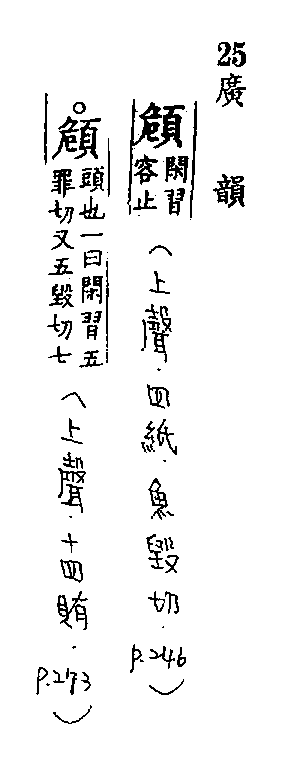 25廣韻
頠 閑習容止(上聲．四紙．魚毀切．P.246)
。頠 頭也一曰閑習五罪切又五毀切七(上聲．十四賄．P.273)